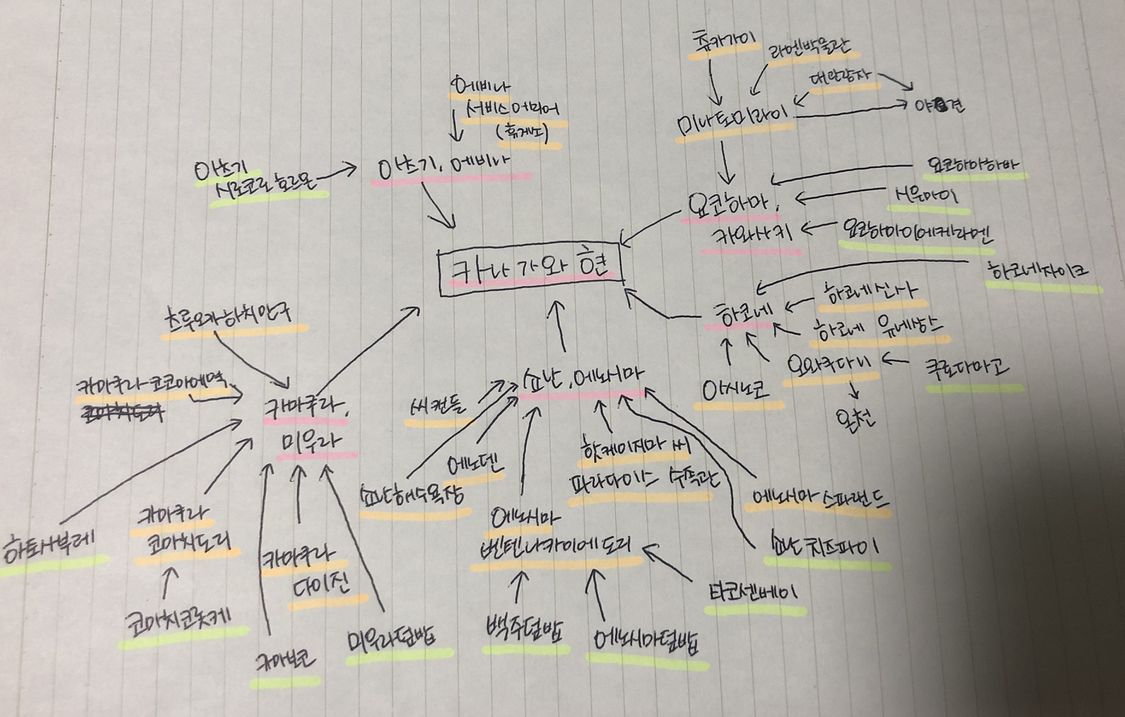 츄카가이
라멘박물관
대관람차
야경
미나토미라이
에비나
서비스 에리어
(휴게소)
아츠기
시로코로 호르몬
아츠기, 에비나
요코하마하바
요코하마,
카와사키
슈마이
요코하마이에케라멘
카나가와 현
하코네자이크
하코네신사
하코네
하코네 유네산스
오와쿠다니
쿠로다마고
아시노코
온천
츠루오카하치만구
카마쿠라코코마에역
코마치도리
카마쿠라,
미우라
쇼난, 에노시마
씨캔들
에노덴
쇼난해수욕장
핫케이지마 씨
파라다이스 수족관
에노시마 스파랜드
쇼난치즈파이
하토사부레
카마쿠라
코마치도리
코마치코롯케
카마쿠라
다이진
카마보코
미우라덮밥
에노시마
벤텐나카미세도리
타코센베이
뱅어덮밥
에노시마덮밥